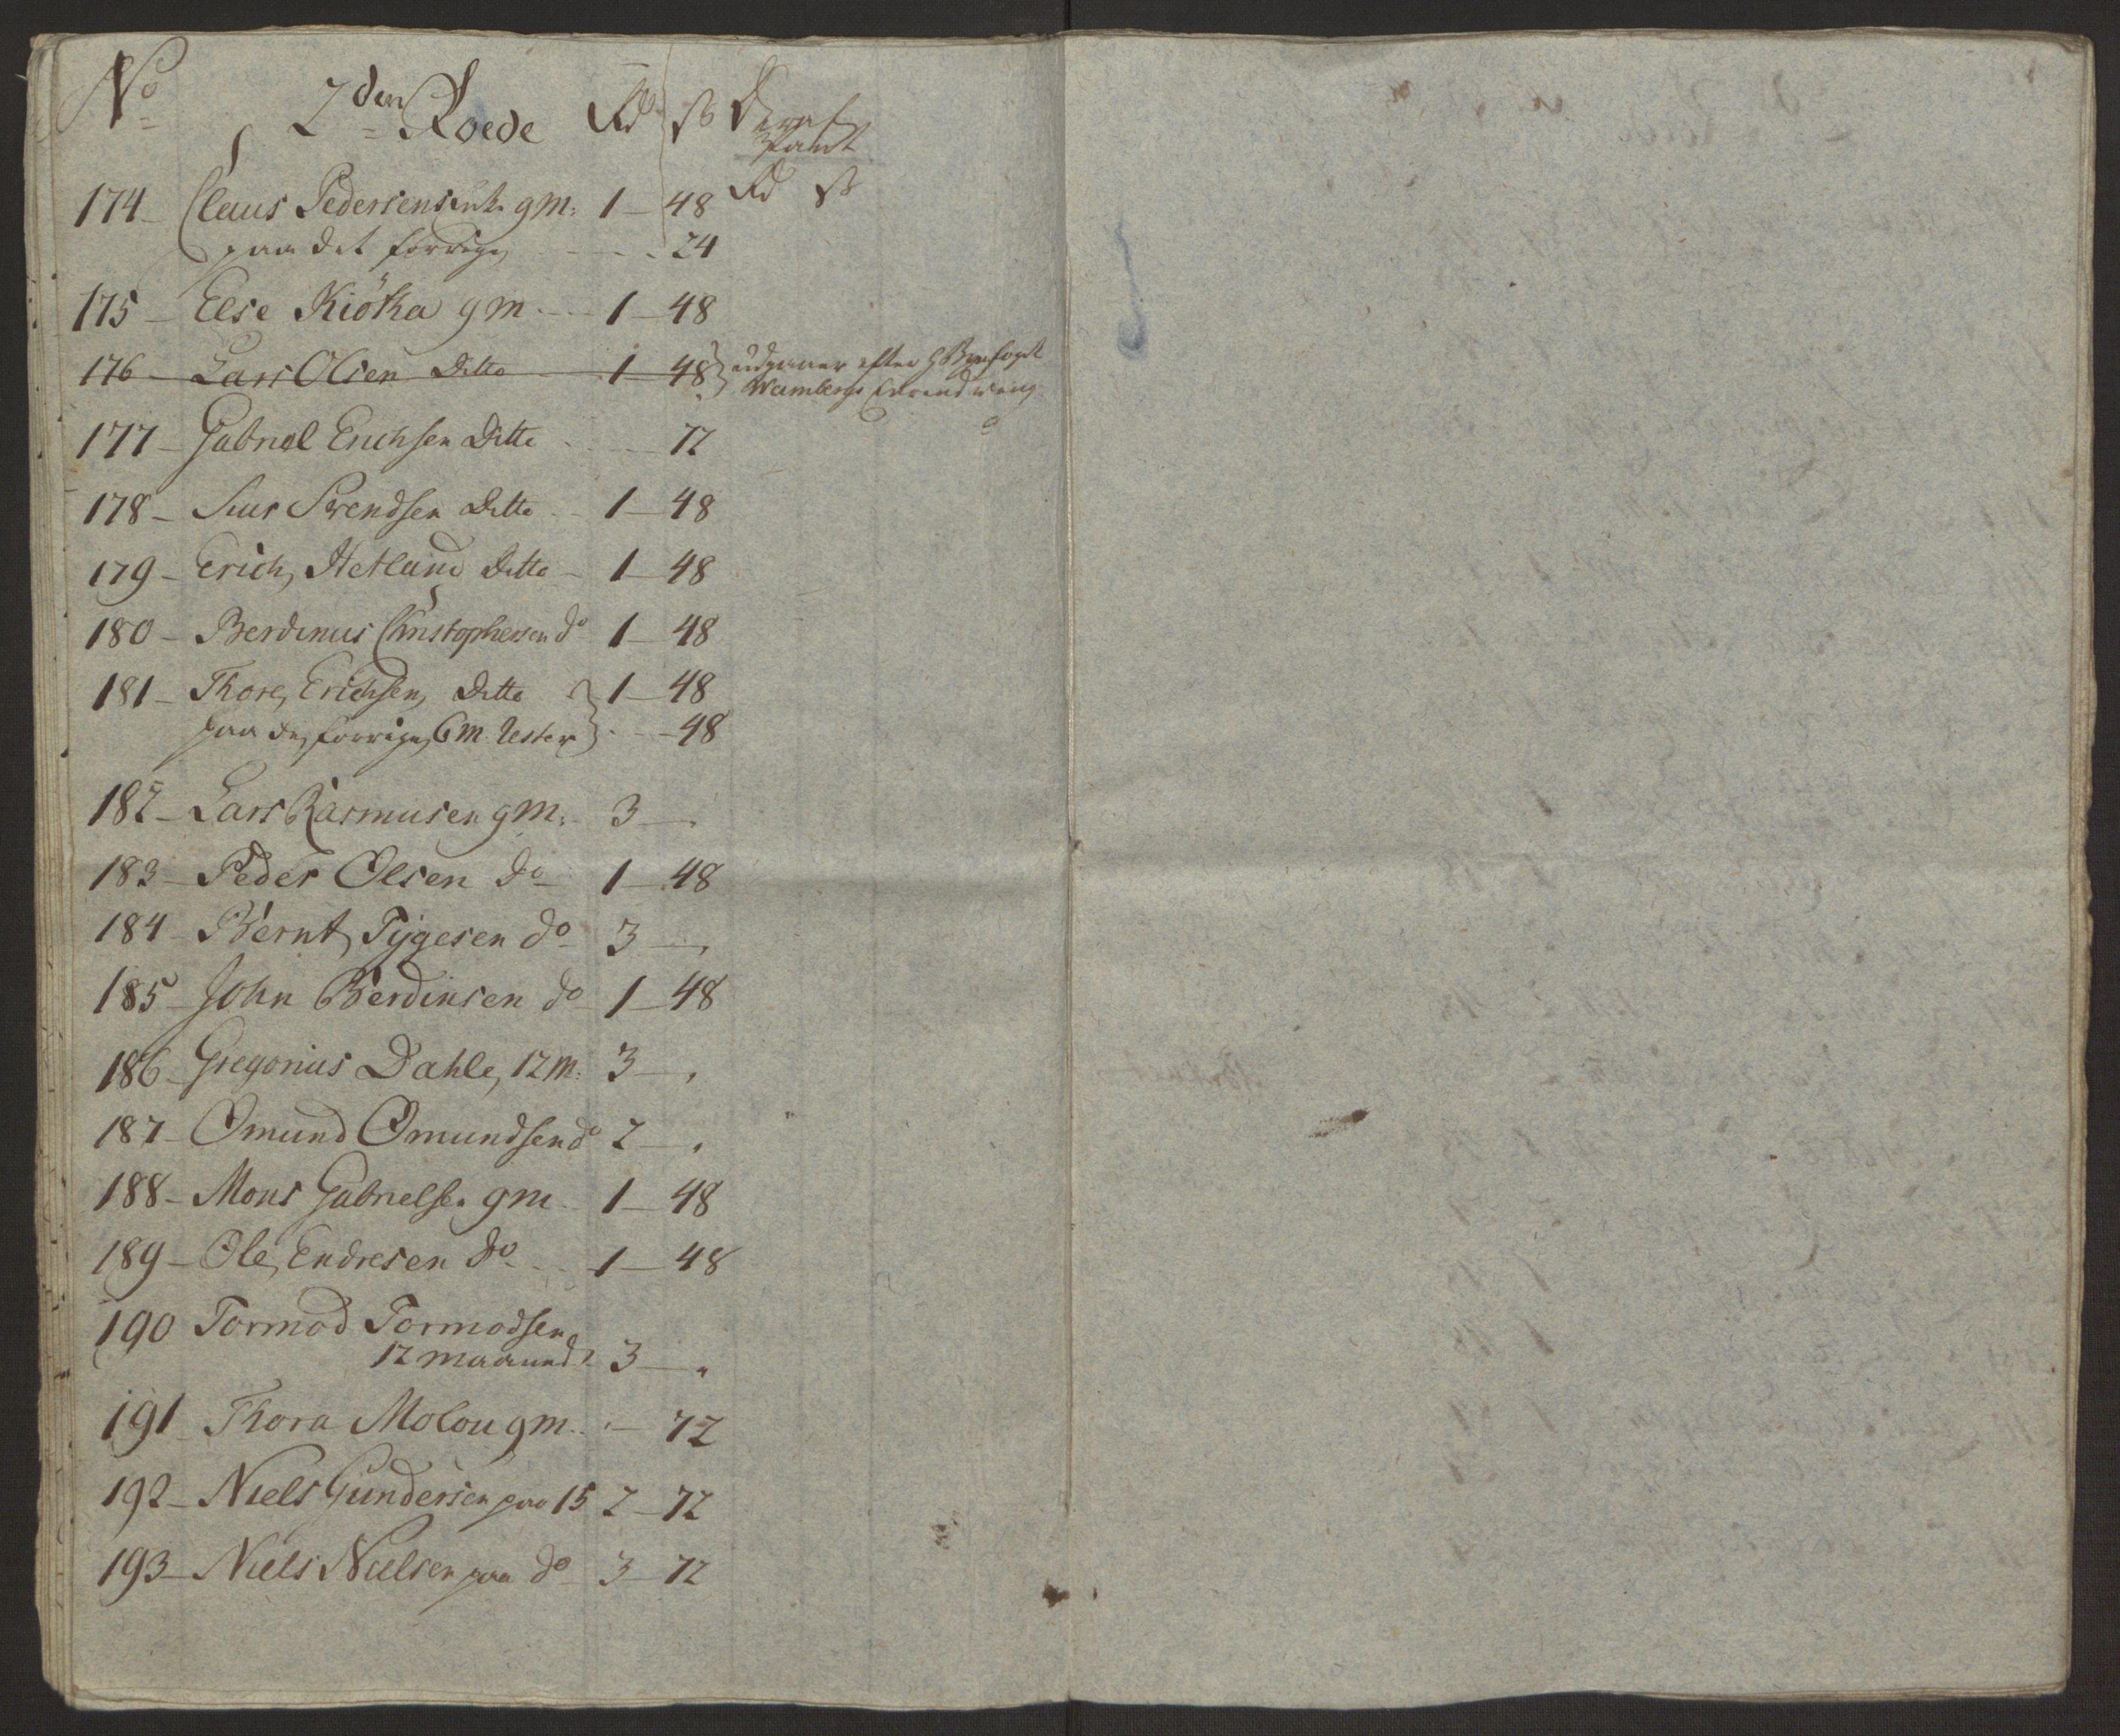 No 2den Roede Rd ß Deraf
Pant
Rd ß
174 - Claus Pedersens enke 9 M: 1 - 48
paa det forrige - - - 24
175 - Else Kiöka 9 M - - 1 - 48
176 - Lars Olsen Ditto 1 - 48 } udgaaer efter H Byefogd
Wambergs
177 - Gabriel Erichsen Ditto - - 72
178 - Siur Svendsen Ditto - 1 - 48
179 - Erich Hetland Ditto - 1 - 48
180 - Berdinus Christophersen do 1 - 48
181 - Thore Erichsen Ditto } 1 - 48
paa de forrige 6 M Rester } - - 48
182 - Lars Rasmusen 9 M: 3 -
183 - Peder Olsen do - 1 - 48
184 - Bernt Tygesen do - 3 -
185 - John Berdinsen do - 1 - 48
186 - Gregorius Dahle, 12 M: 3 - "
187 - Omund Omundsen do 2 - "
188 - Mons Gabrielsen 9 M - 1 - 48
189 - Ole Endresen do - - 1 - 48
190 Tormod Tormodsen
12 maaned 3 - "
191 - Thora Molou 9 M - " - 72
192 - Niels Gundersen paa 15 2 - 72
193 - Niels Nielsen paa do - 3 - 72